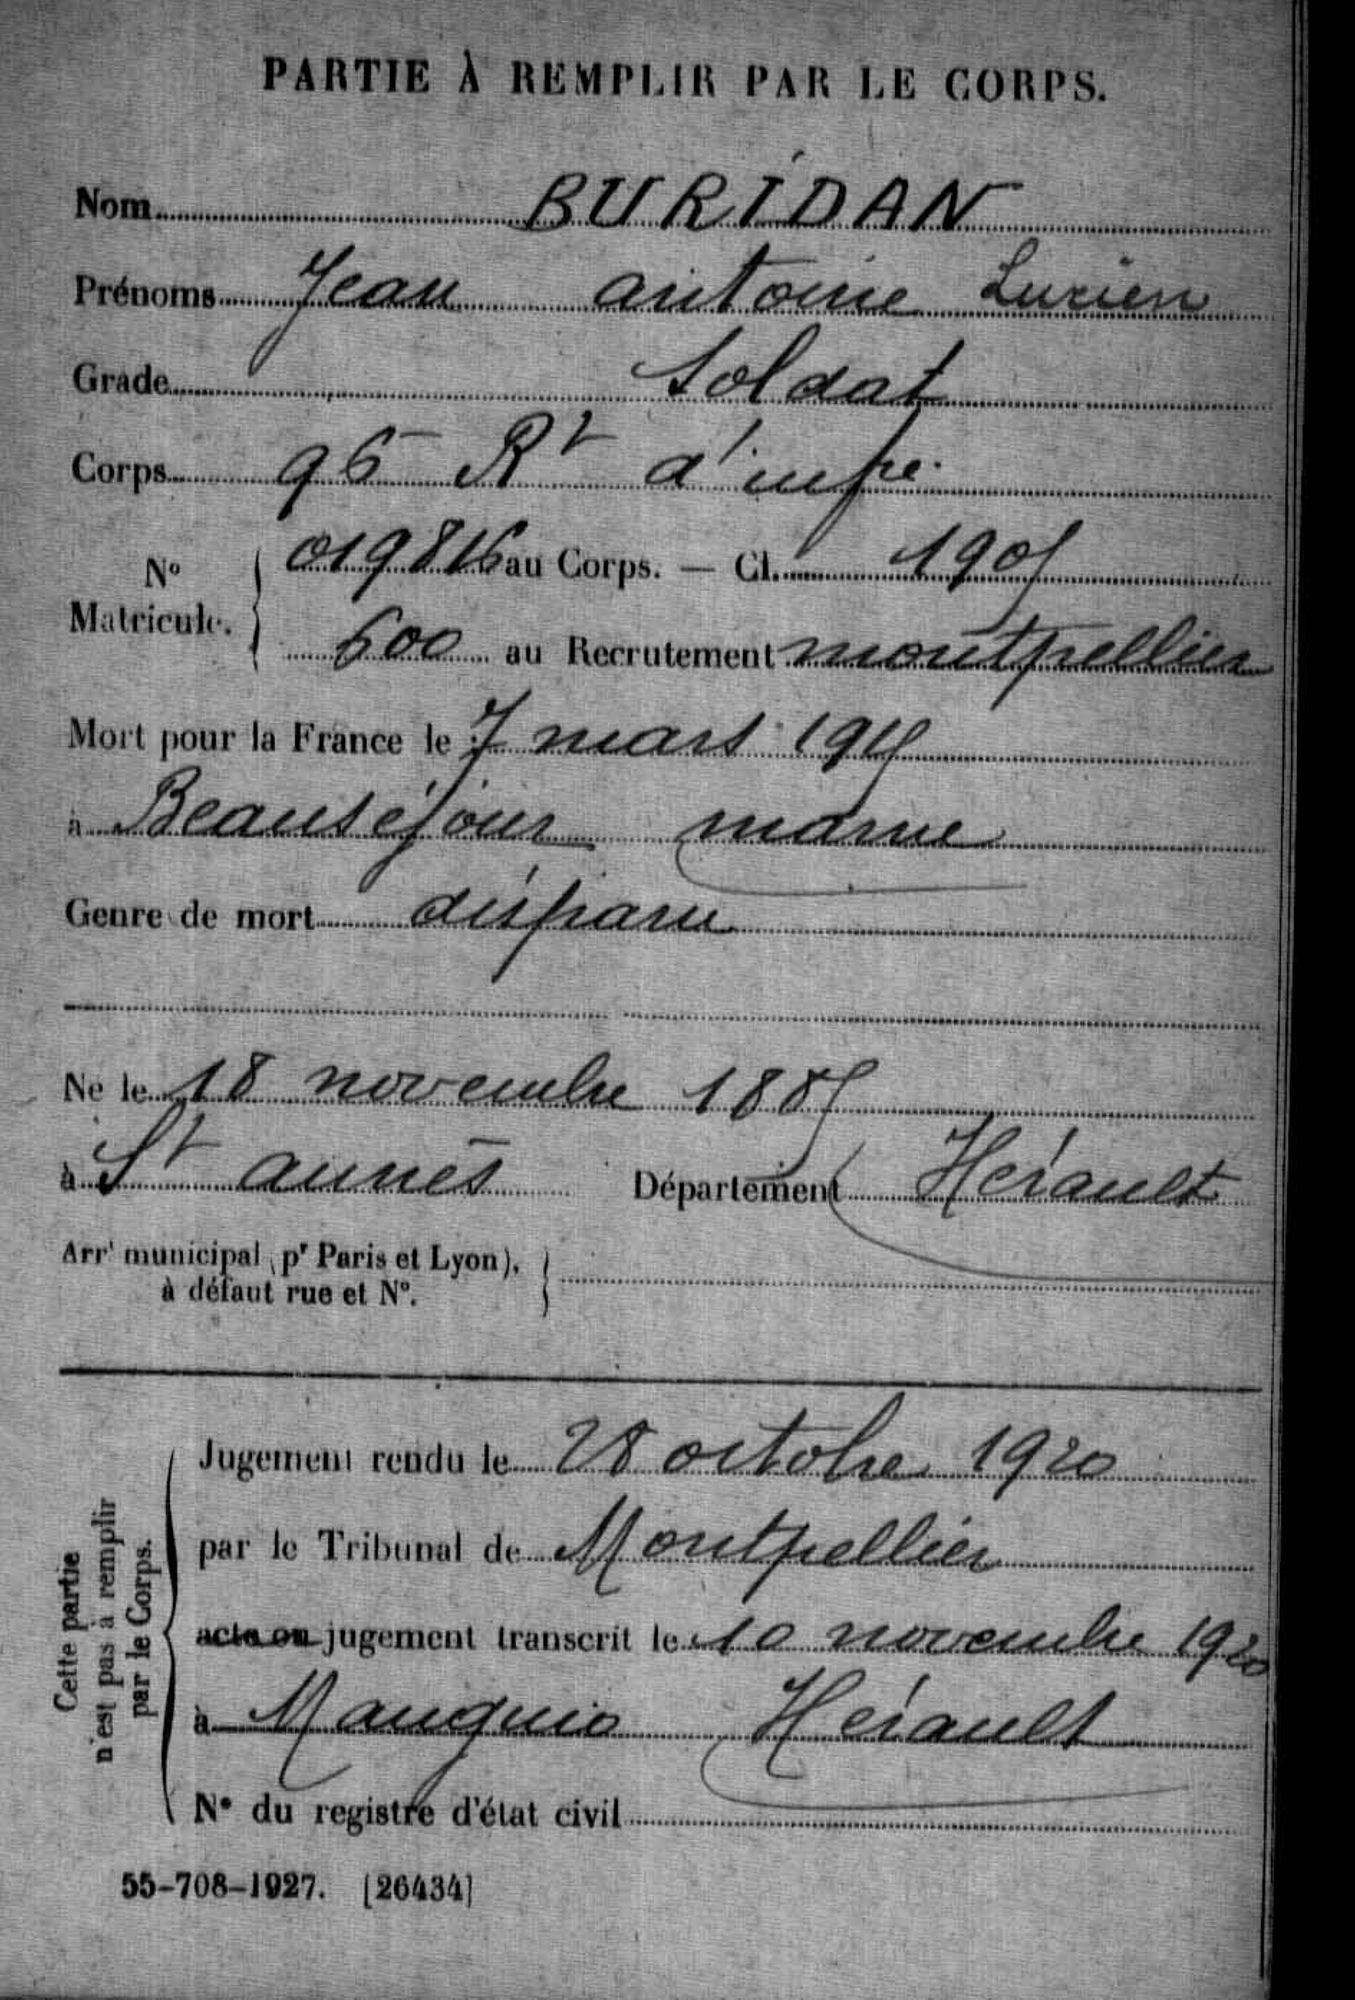 PARTIE À REMPLIR PAR LE CORPS.
Nom BURIDAN
Prénoms Jean antoine Lucien
Grade Soldat
Corps 96 Rt d'infie.
No Matricule. 019816 au Corps. — Cl. 1905
600 au Recrutement montpellier
Mort pour la France le 7 mars 1915
à Beauséjour marne
Genre de mort disparu
Né le 18 novembre 1885
à St aunès Département Hérault
Arrt municipal (pr Paris et Lyon),
à défaut rue et No.
Cette partie
n'est pas à remplir
par le Corps.
Jugement rendu le 28 octobre 1920
par le Tribunal de Montpellier
acte ou jugement transcrit le 10 novembre 1920
à Mauguio Hérault
No du registre d'état civil
55-708-1927. [26434]